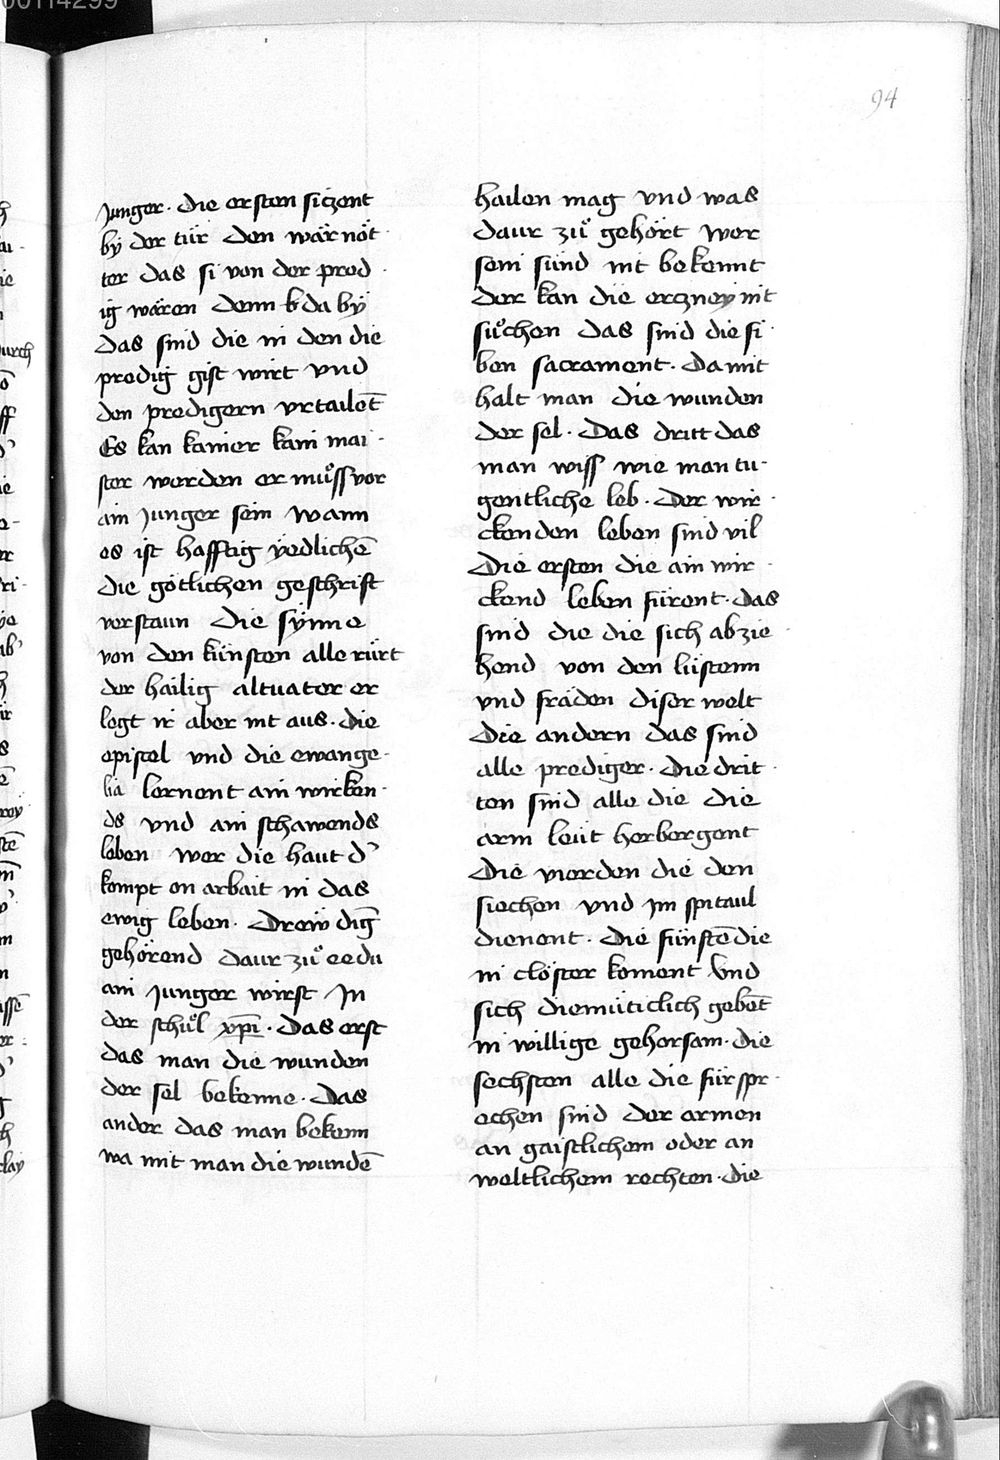 94
Junger · Die ersten siczent
by der tür Den wär nöt
ter das si von der pred
ig wären denn da by
Das sind die in den die
predig gist wirt vnd
den predigern vrtailēt
Es kan kainer kain mai-
ster werden er müͦss vor
ain Junger sein Wann
es ist hafftig yedlichē
die götlichen geschrift
verstaun Die synne
von den künsten alle rürt
der hailig altuater er
legt ir aber nit aus · die
epistel vnd die ewange-
lia lernent ain wirken-
ds vnd ain schawends
leben wer die haut d'
kompt on arbait in das
ewig leben · Drew dīg
gehörend daur zuͦ ee du
ain Junger wirst In
der schuͦl xp̄i · Das erst
das man die wunden
der sel bekenne · Das
ander das man bekenn
wa mit man die wundē
hailen mag vnd was
daur zuͦ gehört wer
sein sünd nit bekennt
der kan die erczney nit
suͦchen Das sind die si
ben sacrament · Da mit
halt man die wunden
der sel · Das dritt das
man wiss wie man tu-
gentliche leb · Der wir
ckenden leben sind vil
Die ersten die ain wir
ckend leben fürent · das
sind die die sich abzie
hend von den lüstenn
vnd fräden diser welt
Die andern das sind
alle prediger · Die drit
ten sind alle die die
arm leüt herbergent
Die vierden die den
siechen vnd jm spitaul
dienent · Die fünftē die
in clöster koment Vnd
sich diemüticlich gebēt
in willige gehorsam · die
sechsten alle die für spr
echen sind der armen
an gaistlichem oder an
weltlichem rechten · die